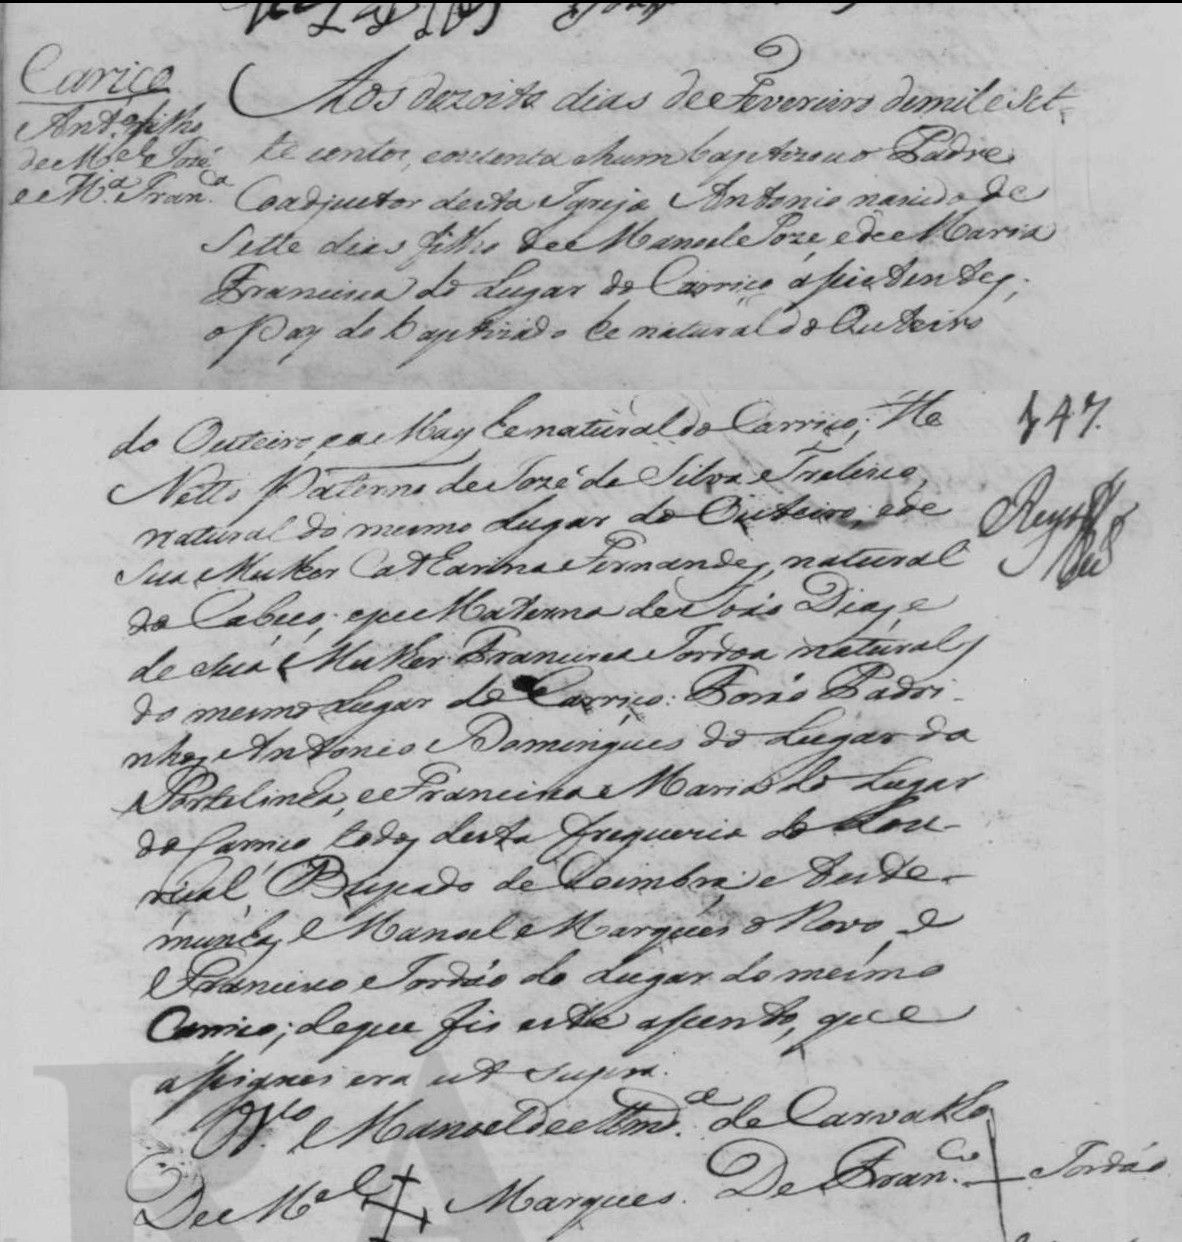 Cariço
Ant.º filho
de M.el Jozé
e M.ª Fran.ca
Aos dezoito dias de Fevereiro de mil e set-
te centos, e outenta e hum baptizou o Padre
Coadjuctor desta Igreja Antonio nacido de
Sette dias filho de Manoel Joze, e de Maria
Francisca do Lugar do Carriço assistentes;
o Pay do baptizado he natural do Outeiro
do Outeiro, e a May he natural do Carriço; He
Netto Paterno de José da Silva
natural do mesmo Lugar do Outeiro, e de
sua Mulher Catharina Fernandes, natural
do Cabeço; e pella Materna de João Dias, e
de sua Mulher Francisca Jordoa naturaes
do mesmo Lugar do Carriço: Forão Padri-
nhos Antonio Domingues do Lugar da
Portelinha, e Francisca Maria do Lugar
do Carriço todos desta freguezia do Lou-
riçal, Bispado de Coimbra e teste-
munhas Manoel Marques o Novo, e
Francisco Jordão do Lugar do mesmo
Carriço; de que fis este assento, que
assignei era ut supra.
Manoel de Alm.de de Carvalho
De M.el Marques. De Fran.co Jordão
147.